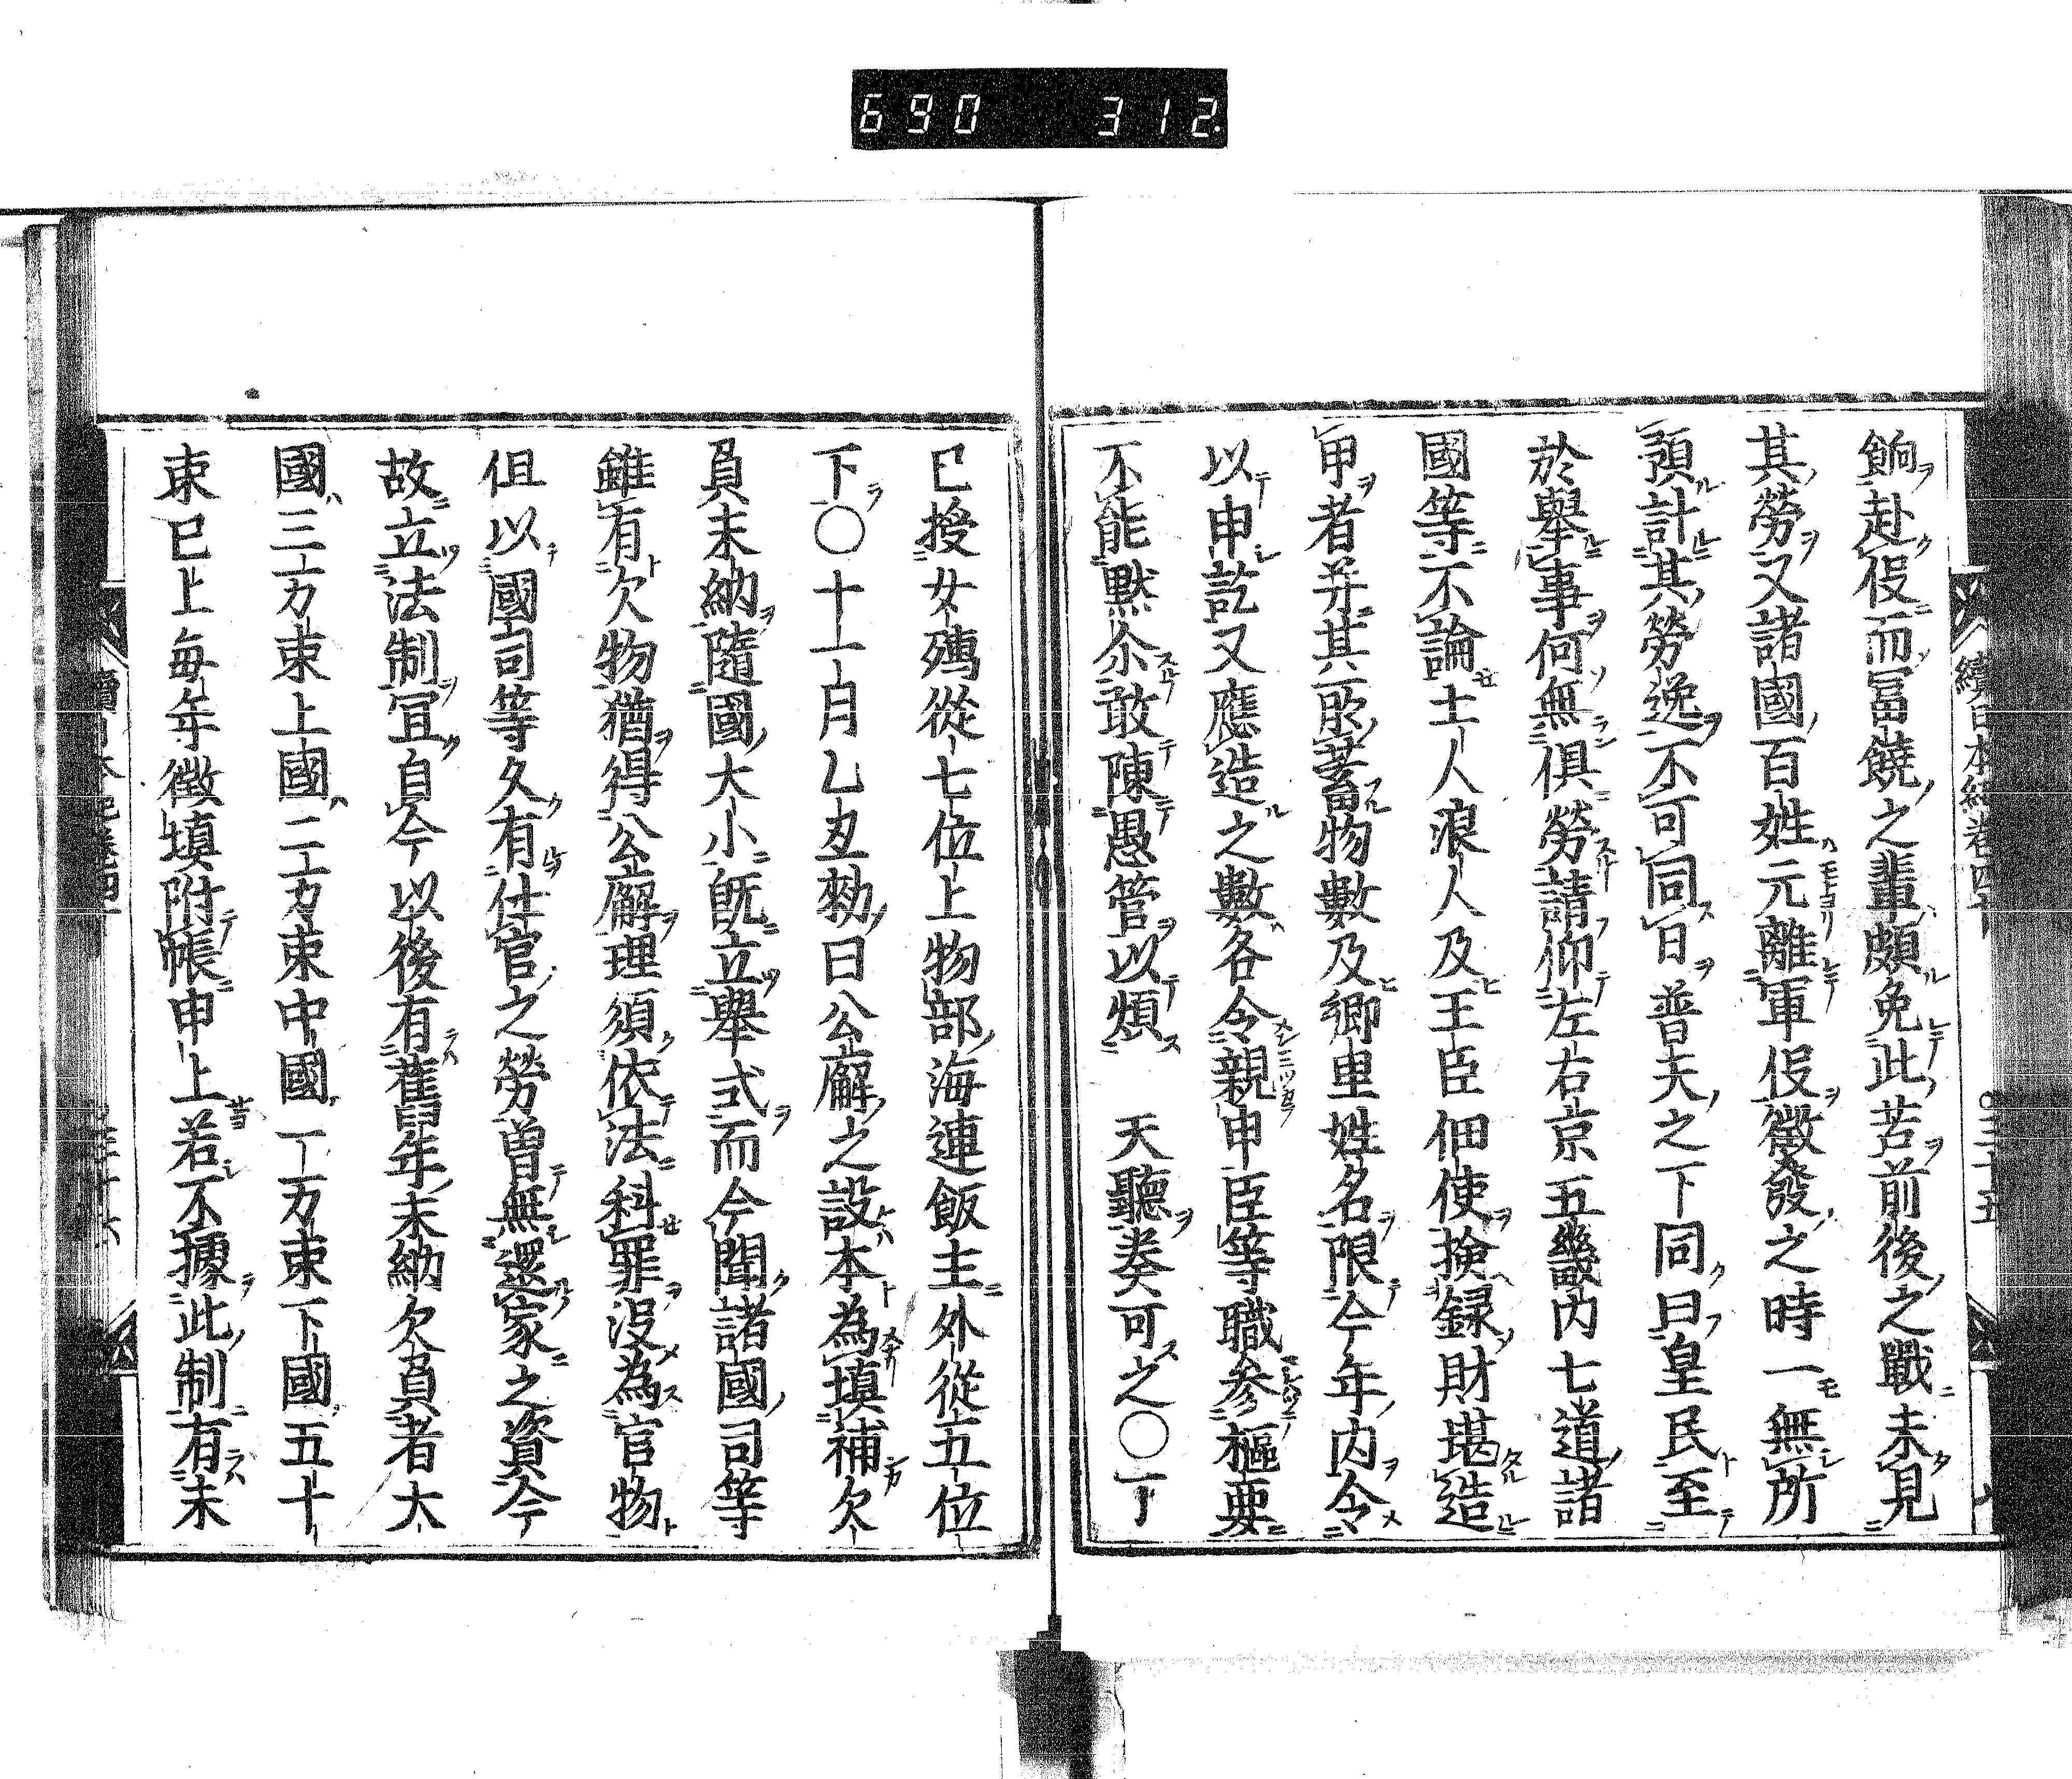 690 312
餉赴役而冨饒之輩頗免此苦前後之戰未見
其勞又諸國百姓元離軍役徴發之時一無所
預計其勞逸不可同日普天之下同曰皇民至
於舉事何無俱勞請仰左右京五畿内七道諸
國等不論土人浪人及王臣佃使撿録財堪造
甲者并其所蓄物數及郷里姓名限今年内令
以申訖又應造之數各令親申臣等職参樞要
不能黙尓敢陳愚管以煩 天聽奏可之〇丁
巳授女孺從七位上物部海連飯主外從五位
下〇十一月乙丑勑曰公廨之設本為填補欠
負未納隨國大小既立舉式而今聞諸國司等
雖有欠物猶得公廨理須依法科罪没為官物
但以國司等久有仕官之勞曽無還家之資今
故立法制冝自今以後有舊年未納欠負者大
國三万束上國二万束中國一万束下國五十
束已上毎年徴填附帳申上若不據此制有未